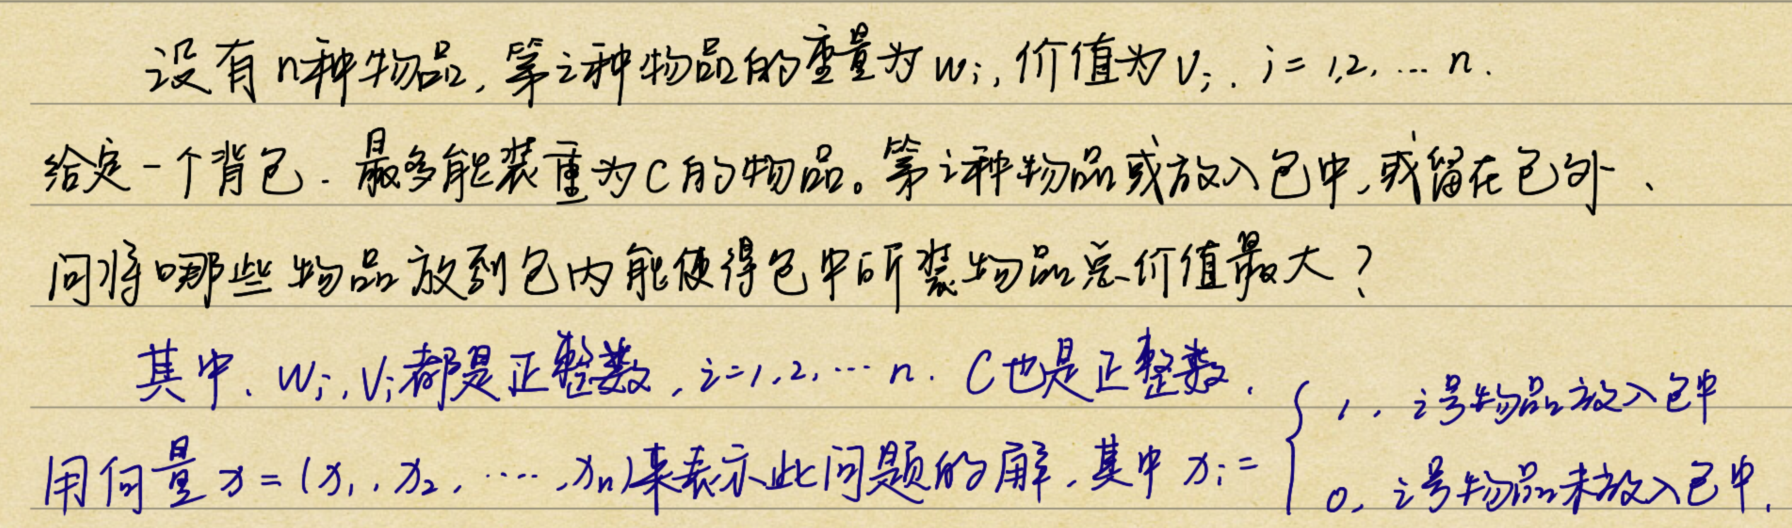 设有n种物品,第i种物品的重量为wi,价值为vi. i=1,2,…n.
给定一个背包.最多能装重为C的物品。第i种物品或放入包中,或留在包外、
问将哪些物品放到包内能使得包中所装物品总价值最大?
其中、wi,vi都是正整数,i=1,2,…n. C也是正整数.
用向量x=(x1,x2,…,xn)来表示此问题的解,其中xi= { 1,i号物品放入包中
0,i号物品未放入包中.